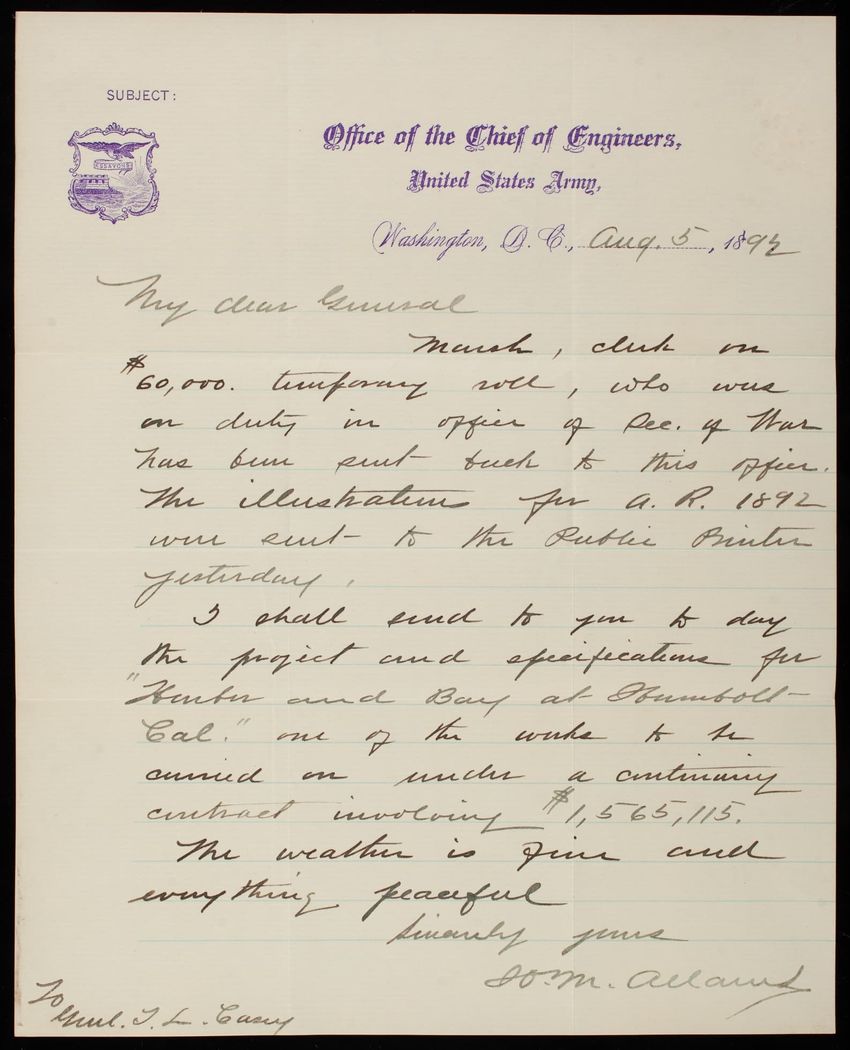 SUBJECT:
ESSAYONS
Office of the Chief of Engineers,
United States Army,
Washington, D. C., Aug. 5, 1892
My dear General
Marsh, clerk on
$60,000. temporary roll, who was
on duty in office of Sec. of War
has been sent back to this office.
The illustrations for A. R. 1892
were sent to the Public Printer
yesterday.
I shall send to you to day
the project and specifications for
"Harbor and Bay at Humbolt
Cal." one of the works to be
carried on under a continuing
contract involving $1,565,115.
The weather is fine and
everything peaceful
Sincerely yours
H. M. Adams
To
Genl. T. L. Casey